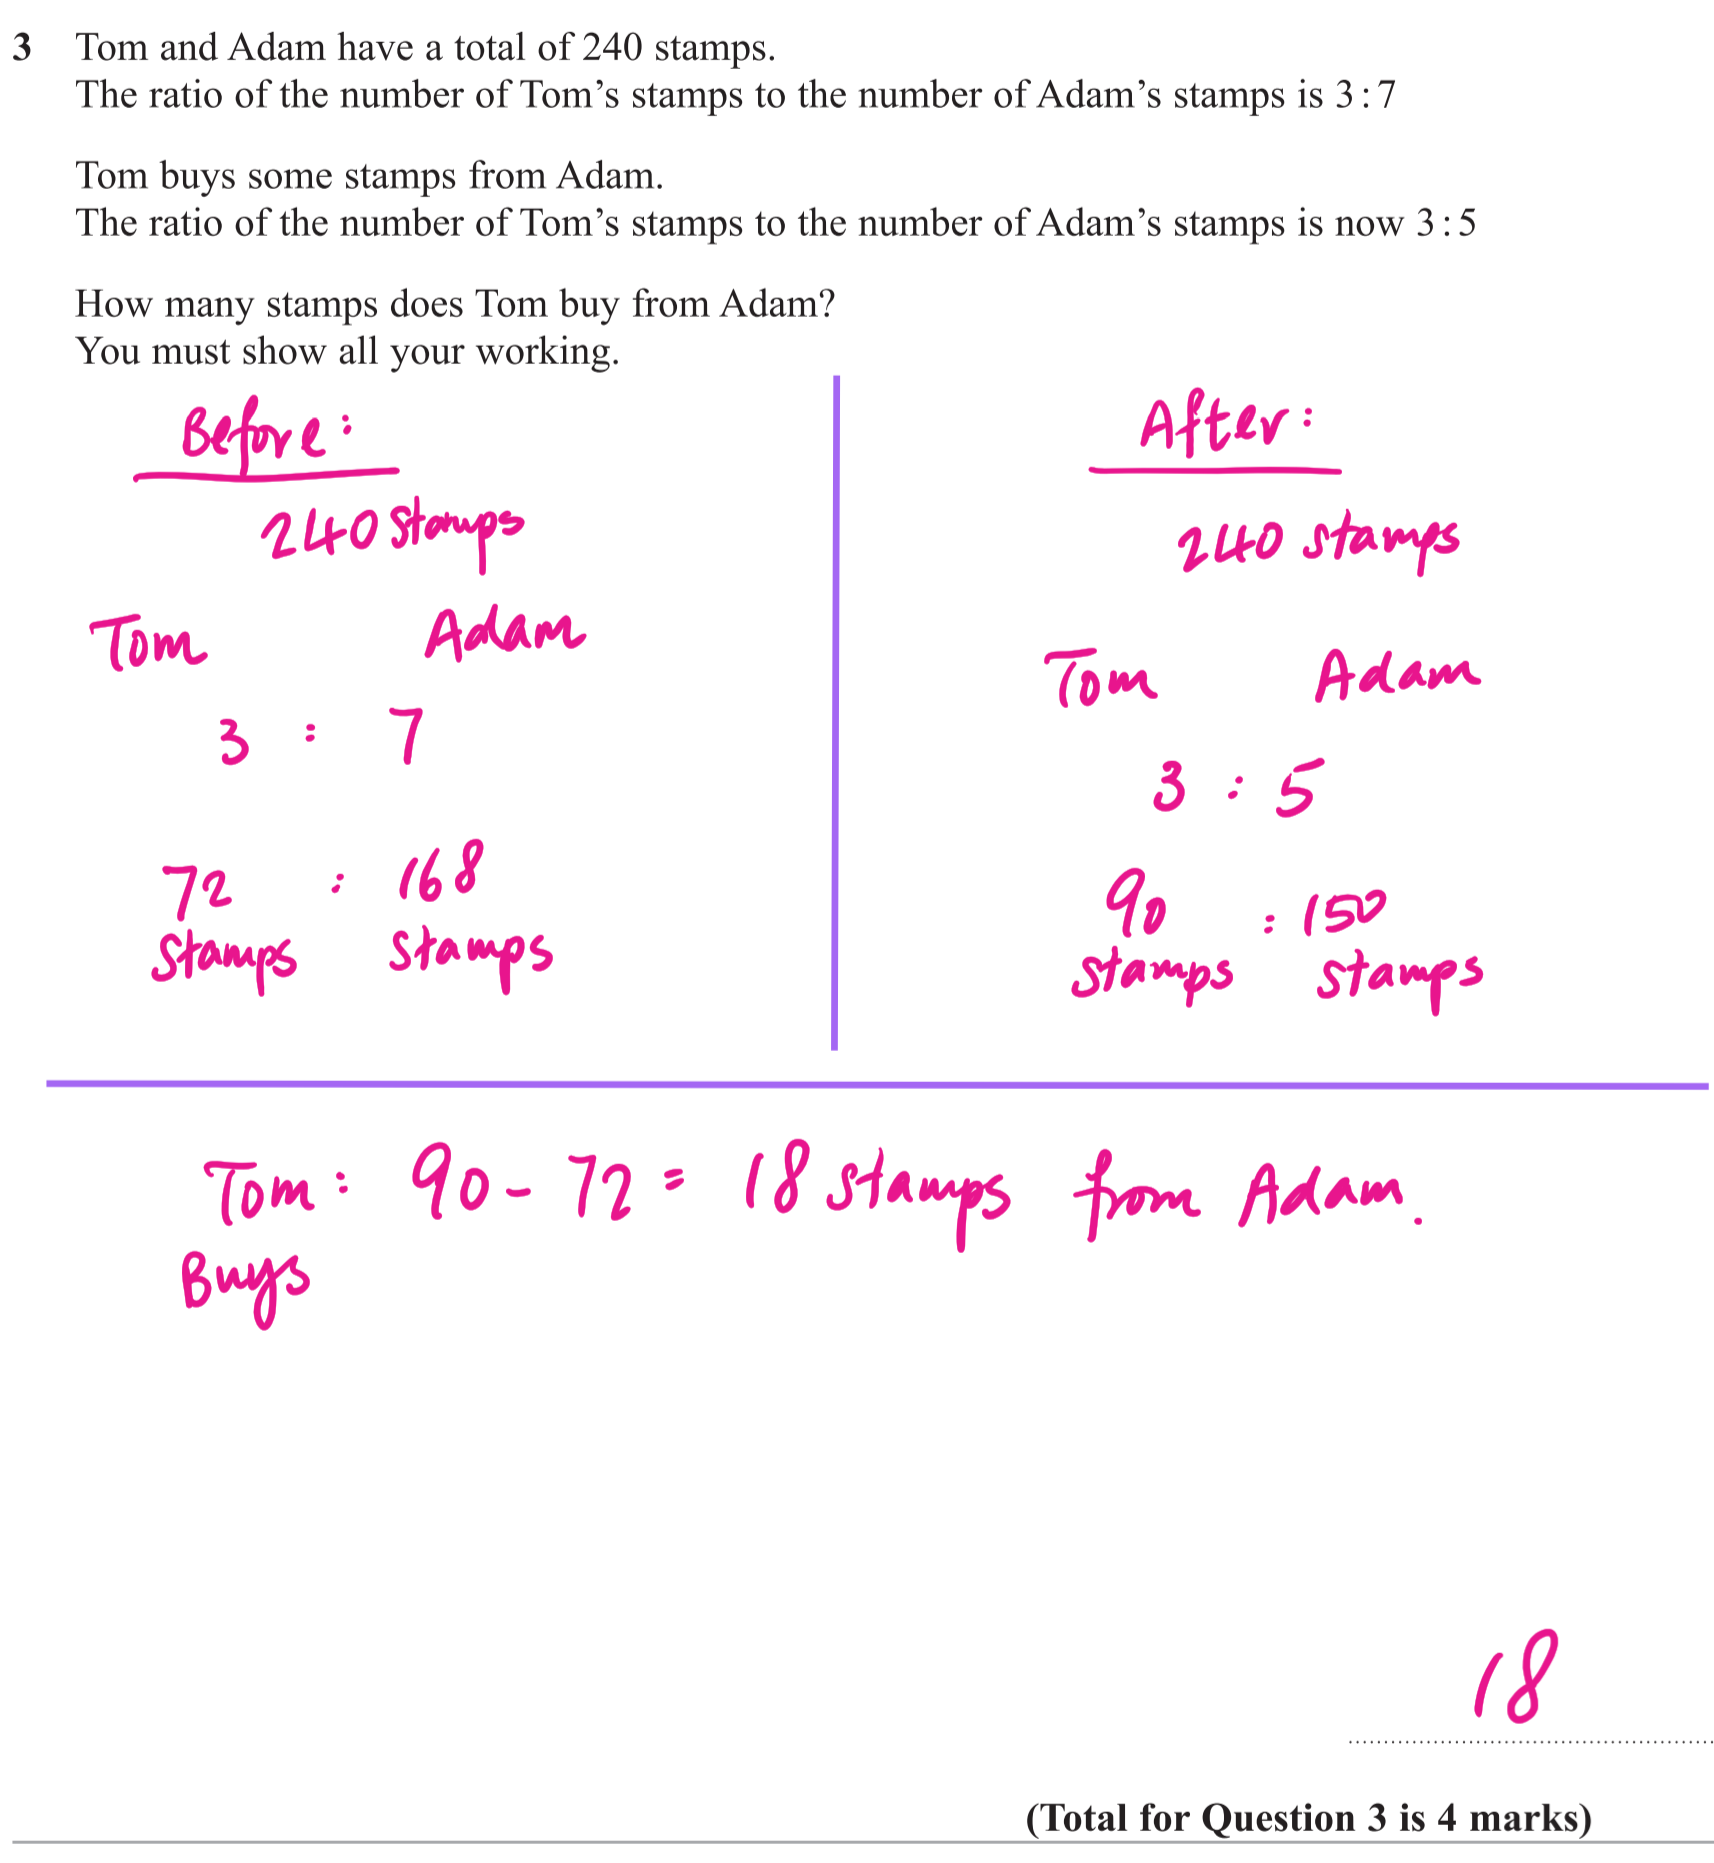 3 Tom and Adam have a total of 240 stamps.
The ratio of the number of Tom’s stamps to the number of Adam’s stamps is 3 : 7
Tom buys some stamps from Adam.
The ratio of the number of Tom’s stamps to the number of Adam’s stamps is now 3 : 5
How many stamps does Tom buy from Adam?
You must show all your working.
Before:
240 stamps
Tom Adam
3 : 7
72 : 168
stamps stamps
After:
240 stamps
Tom Adam
3 : 5
90 : 150
stamps stamps
Tom: 90 - 72 = 18 stamps from Adam.
Buys
18
(Total for Question 3 is 4 marks)